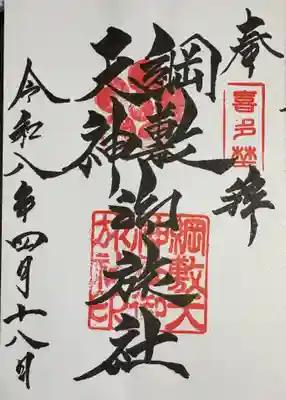 奉拝
喜多埜
綱敷
天神
御旅社
綱敷天
神社御
旅社印
令和八年四月十八日